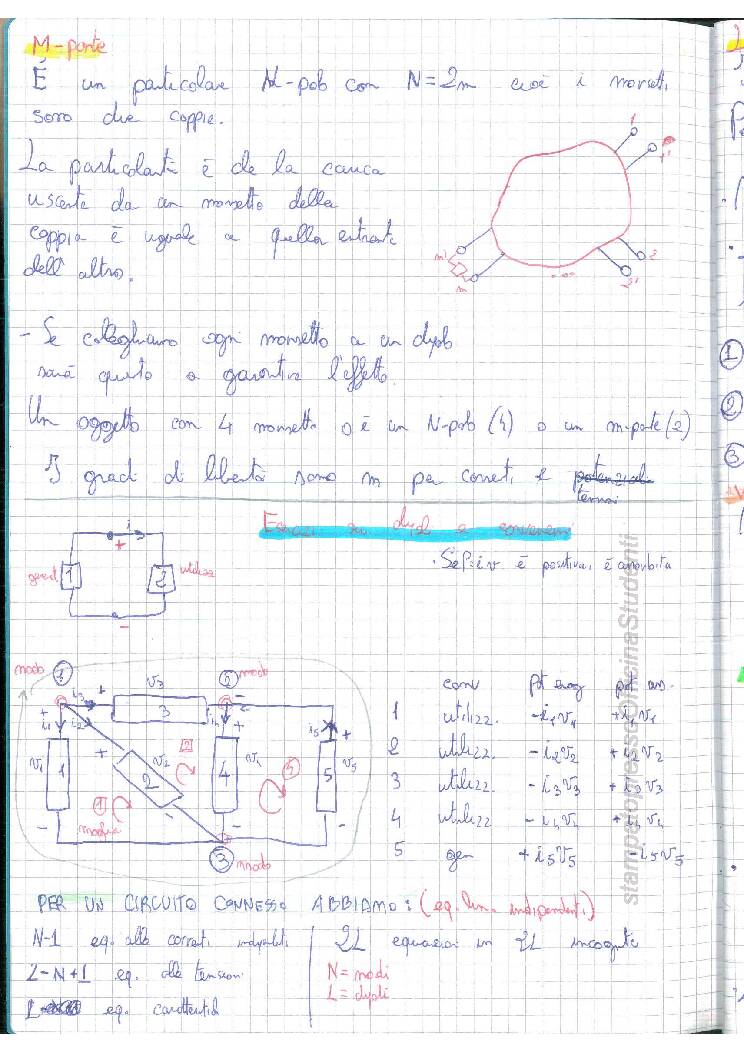 M-porte
È un particolare N-polo con N=2m cioè i morsetti
sono due coppie.
La particolarità è che la carica
uscente da un morsetto della
coppia è uguale a quella entrante
dell'altro.
1
1'
m'
m
2
2'
- Se colleghiamo ogni morsetto a un dipolo
sarà questo a garantire l'effetto.
Un oggetto con 4 morsetti o è un N-polo (4) o un m-porte (2)
I gradi di libertà sono m per correnti e potenziale
tensioni
Esercizi su dipoli e convenzioni
i
+
gener.
1
2
utilizz
-
· Se P=iv è positiva, è assorbita
nodo
1
2
nodo
i3 + v3 -
3
i1
i2
i4
i5
v1
1
v2
2
v4
4
v5
5
maglia
3
nodo
conv pot erog pot ass.
1 utilizz. -i1v1 +i1v1
2 utilizz. -i2v2 +i2v2
3 utilizz. -i3v3 +i3v3
4 utilizz -i4v4 +i4v4
5 gen +i5v5 -i5v5
PER UN CIRCUITO CONNESSO ABBIAMO: (eq. lin. indipendenti)
N-1 eq. alle correnti indipendenti
2L equazioni in 2L incognite
L-N+1 eq. alle tensioni
N = nodi
L = dipoli
L eq. caratteristiche
stampatopressoOfficinaStudenti